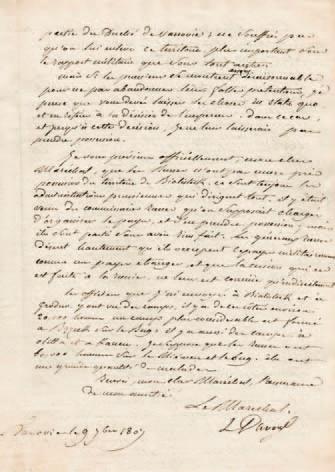 partie du Duché de Varsovie; ne souffrez pas
qu'on lui enlève ce territoire plus important sous
le rapport militaire que sous tout autre.
mais si les prussiens se montrent déraisonnable
pour ne pas abandonner leurs folles prétentions, je
pense que vous devez laisser les choses in statu quo
et en référer à la décision de l'empereur, dans ce cas,
et jusqu'à cette décision, je ne leur laisserais pas
prendre possession.
Je vous préviens officiellement, mon cher
Maréchal, que les Russes n'ont pas encore pris
possession du territoire de Bialistock, ce sont toujours les
administrations prussiennes qui dirigent tout, et y était
venu des commissaires russes, qui
d'organiser le pays, et d'en prendre possession, mais
ils sont partis sans avoir rien fait. Les généraux russes
disent hautement qu'ils occupent le pays militairement
comme un pays étranger et que la cession qui en
est faite à la russie, ne leur est connue qu'indirectement
les officiers que j'ai envoyé à Bialistock et à
Grodno, y ont vu des camps, il y a de ce côté environ
20,000 hommes un camp plus considérable est formé
à Brzesc sur le Bug. il y a aussi des camps à
et à je suppose que les russes ont
60,000 hommes sur le Niemen et le Bug. ils ont
une grande quantité de malades
Recevez, mon cher Maréchal, l'assurance
de mon amitié.
Le Maréchal,
L Davout
Varsovie le 9 7bre 1807